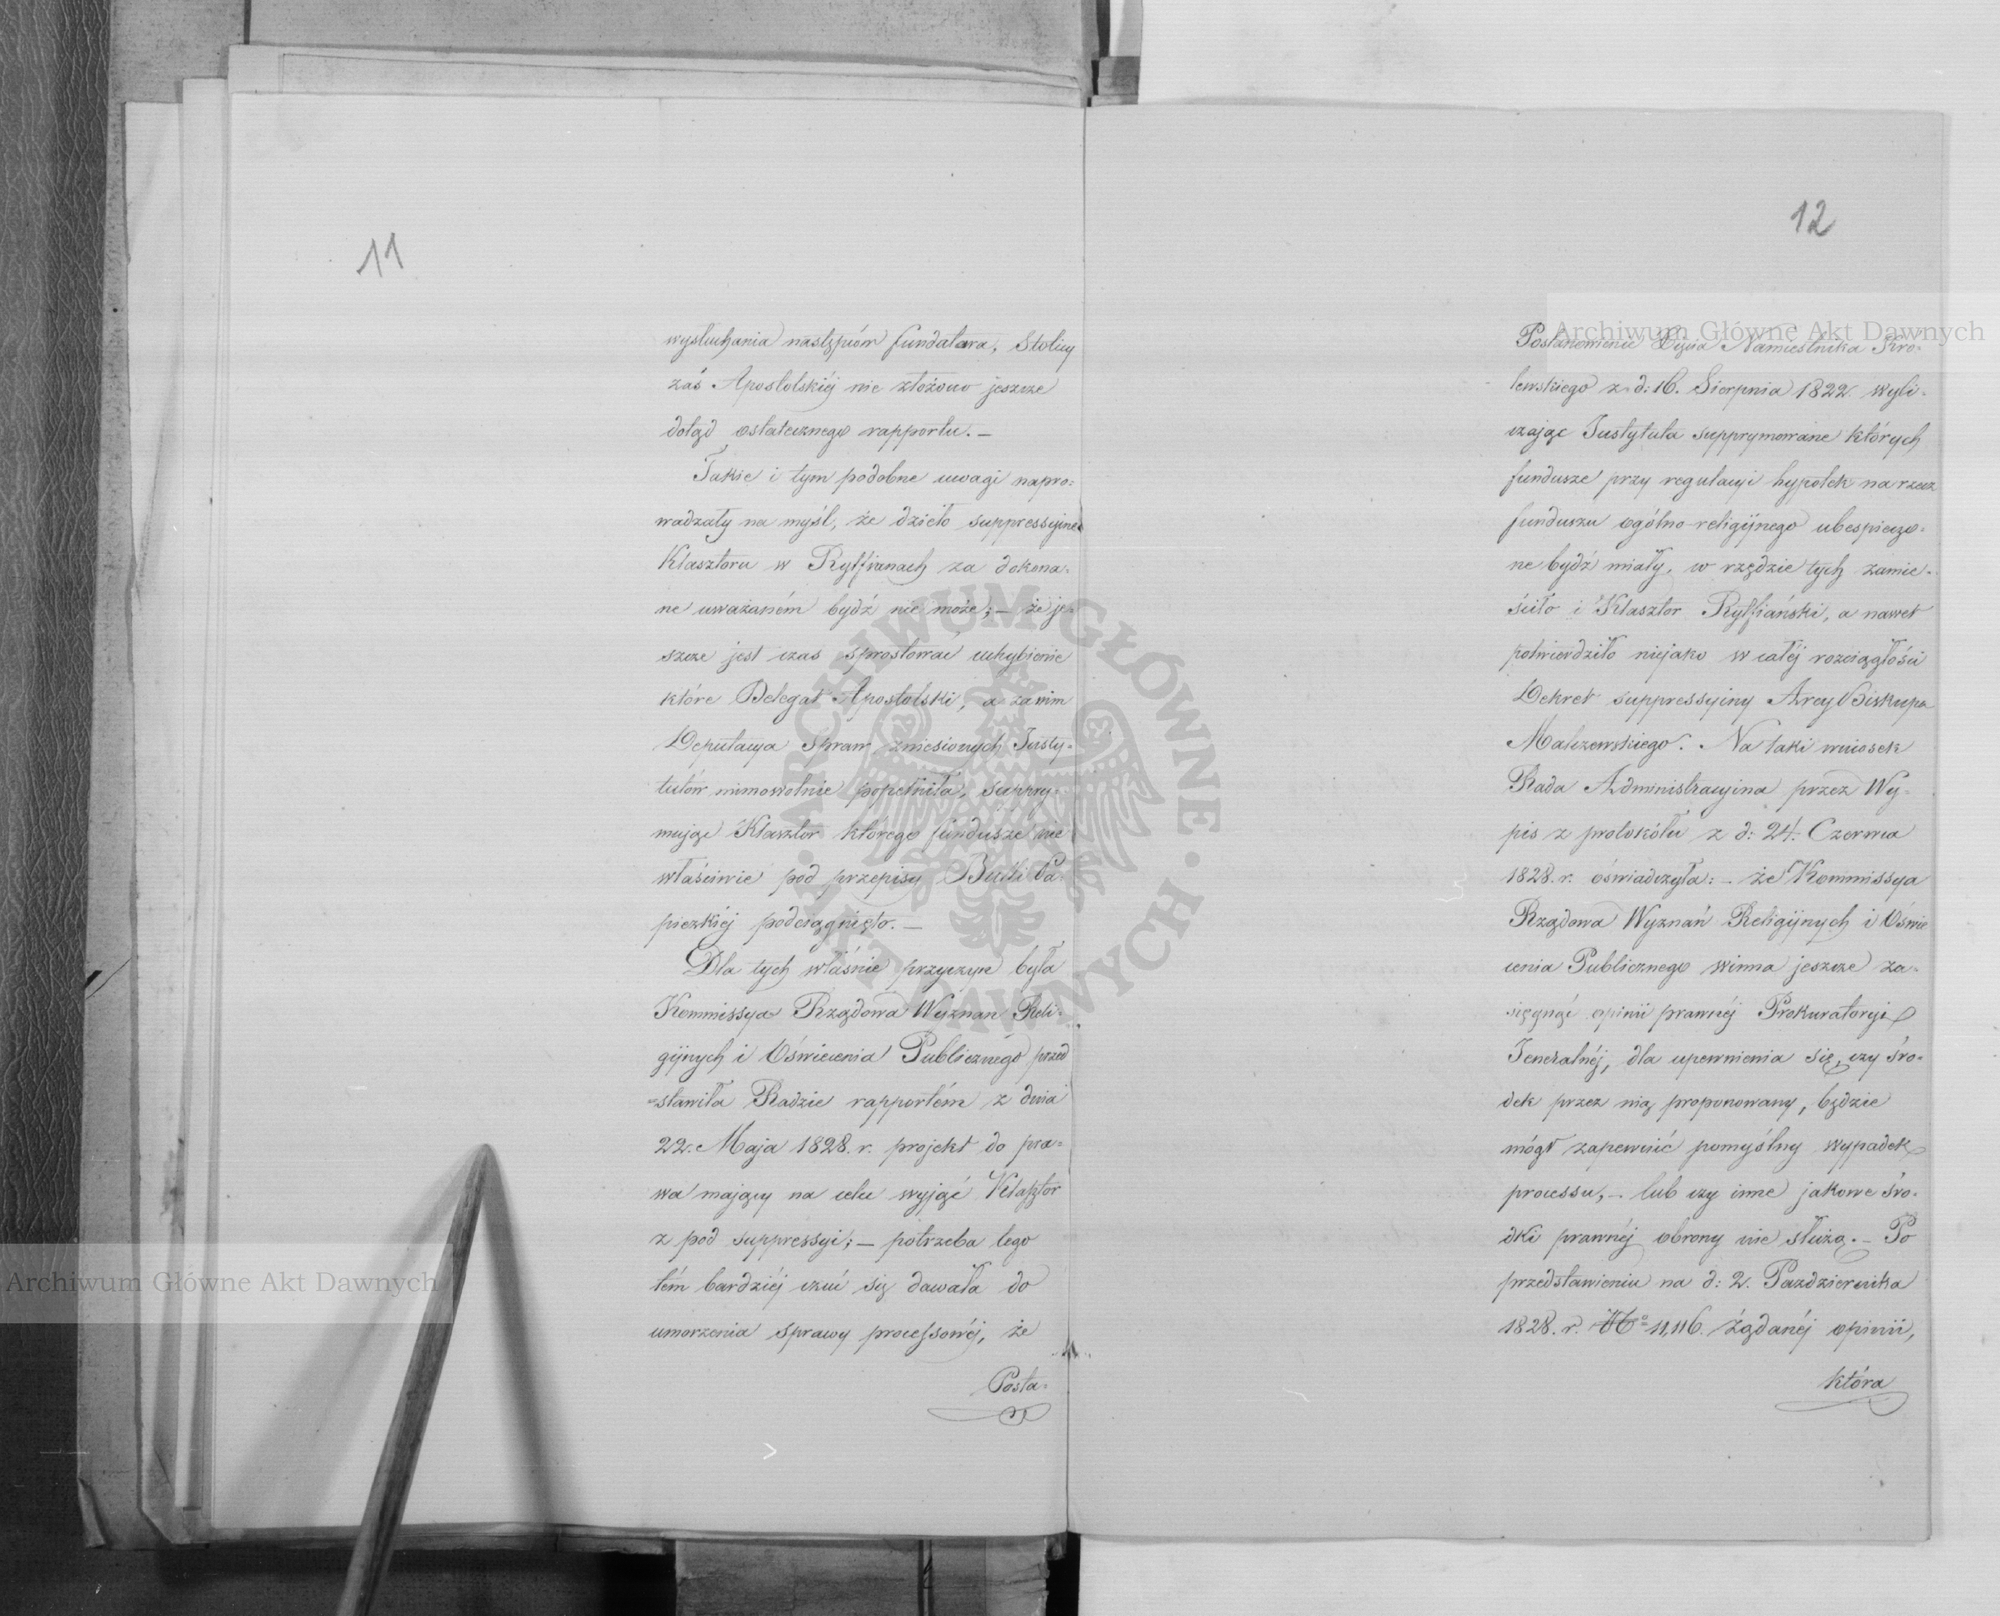 11
wysłuchania następców fundatora, Stolicy
zaś Apostolskiéj nie złożono jeszcze
dotąd ostatecznego rapportu. —
Takie i tym podobne uwagi napro-
wadzały na myśl, że dzieło suppressyjne
Klasztoru w Rytfianach za dokona-
ne uważaném bydź nie może; — że je-
szcze jest czas sprostować uchybienie
które Delegat Apostolski, a za nim
Deputacya spraw zniesionych Insty-
tutów mimowolnie popełniła, suppry-
mując Klasztor którego fundusze nie
właściwie pod przepisy Bulli Pa-
piezkiéj podciągnięto. —
Dla tych właśnie przyczyn była
Kommissya Rządowa Wyznań Reli-
gijnych i Oświecenia Publicznego przed
=stawiła Radzie rapportém z dnia
22. Maja 1828. r. projekt do pra-
wa mający na celu wyjąć Klasztor
z pod suppressyi; — potrzeba tego
tém bardziéj czuć się dawała do
umorzenia sprawy processowéj, że
Posta-
12
Postanowienie Xięcia Namiestnika Kró-
lewskiego z d: 16. Sierpnia 1822. wyli-
czając Instytuta supprymowane których
fundusze przy regulacyi hypotek na rzecz
funduszu ogólno-religijnego ubespieczo-
ne bydź miały, w rzędzie tych zamie-
ściło i Klasztor Rytfiański, a nawet
potwierdziło niejako w całéj rozciągłości
Dekret suppressyjny Arcy Biskupa
Malczewskiego. Na taki wniosek
Rada Administracyjna przez Wy-
pis z protokółu z d: 24. Czerwca
1828. r. oświadczyła: — że Kommissya
Rządowa Wyznań Religijnych i Oświe
cenia Publicznego winna jeszcze za-
sięgnąć opinii prawnéj Prokuratoryi
Jeneralnéj, dla upewnienia się, czy śro-
dek przez nią proponowany, będzie
mógł zapewnić pomyślny wypadek
processu, — lub czy inne jakowe śro-
dki prawnéj obrony nie służą. — Po
przedstawieniu na d: 2. Pazdziernika
1828. r. No 11,116. żądanéj opinii,
która
Archiwum Główne Akt Dawnych
Archiwum Główne Akt Dawnych
ARCHIWUM GŁÓWNE AKT DAWNYCH